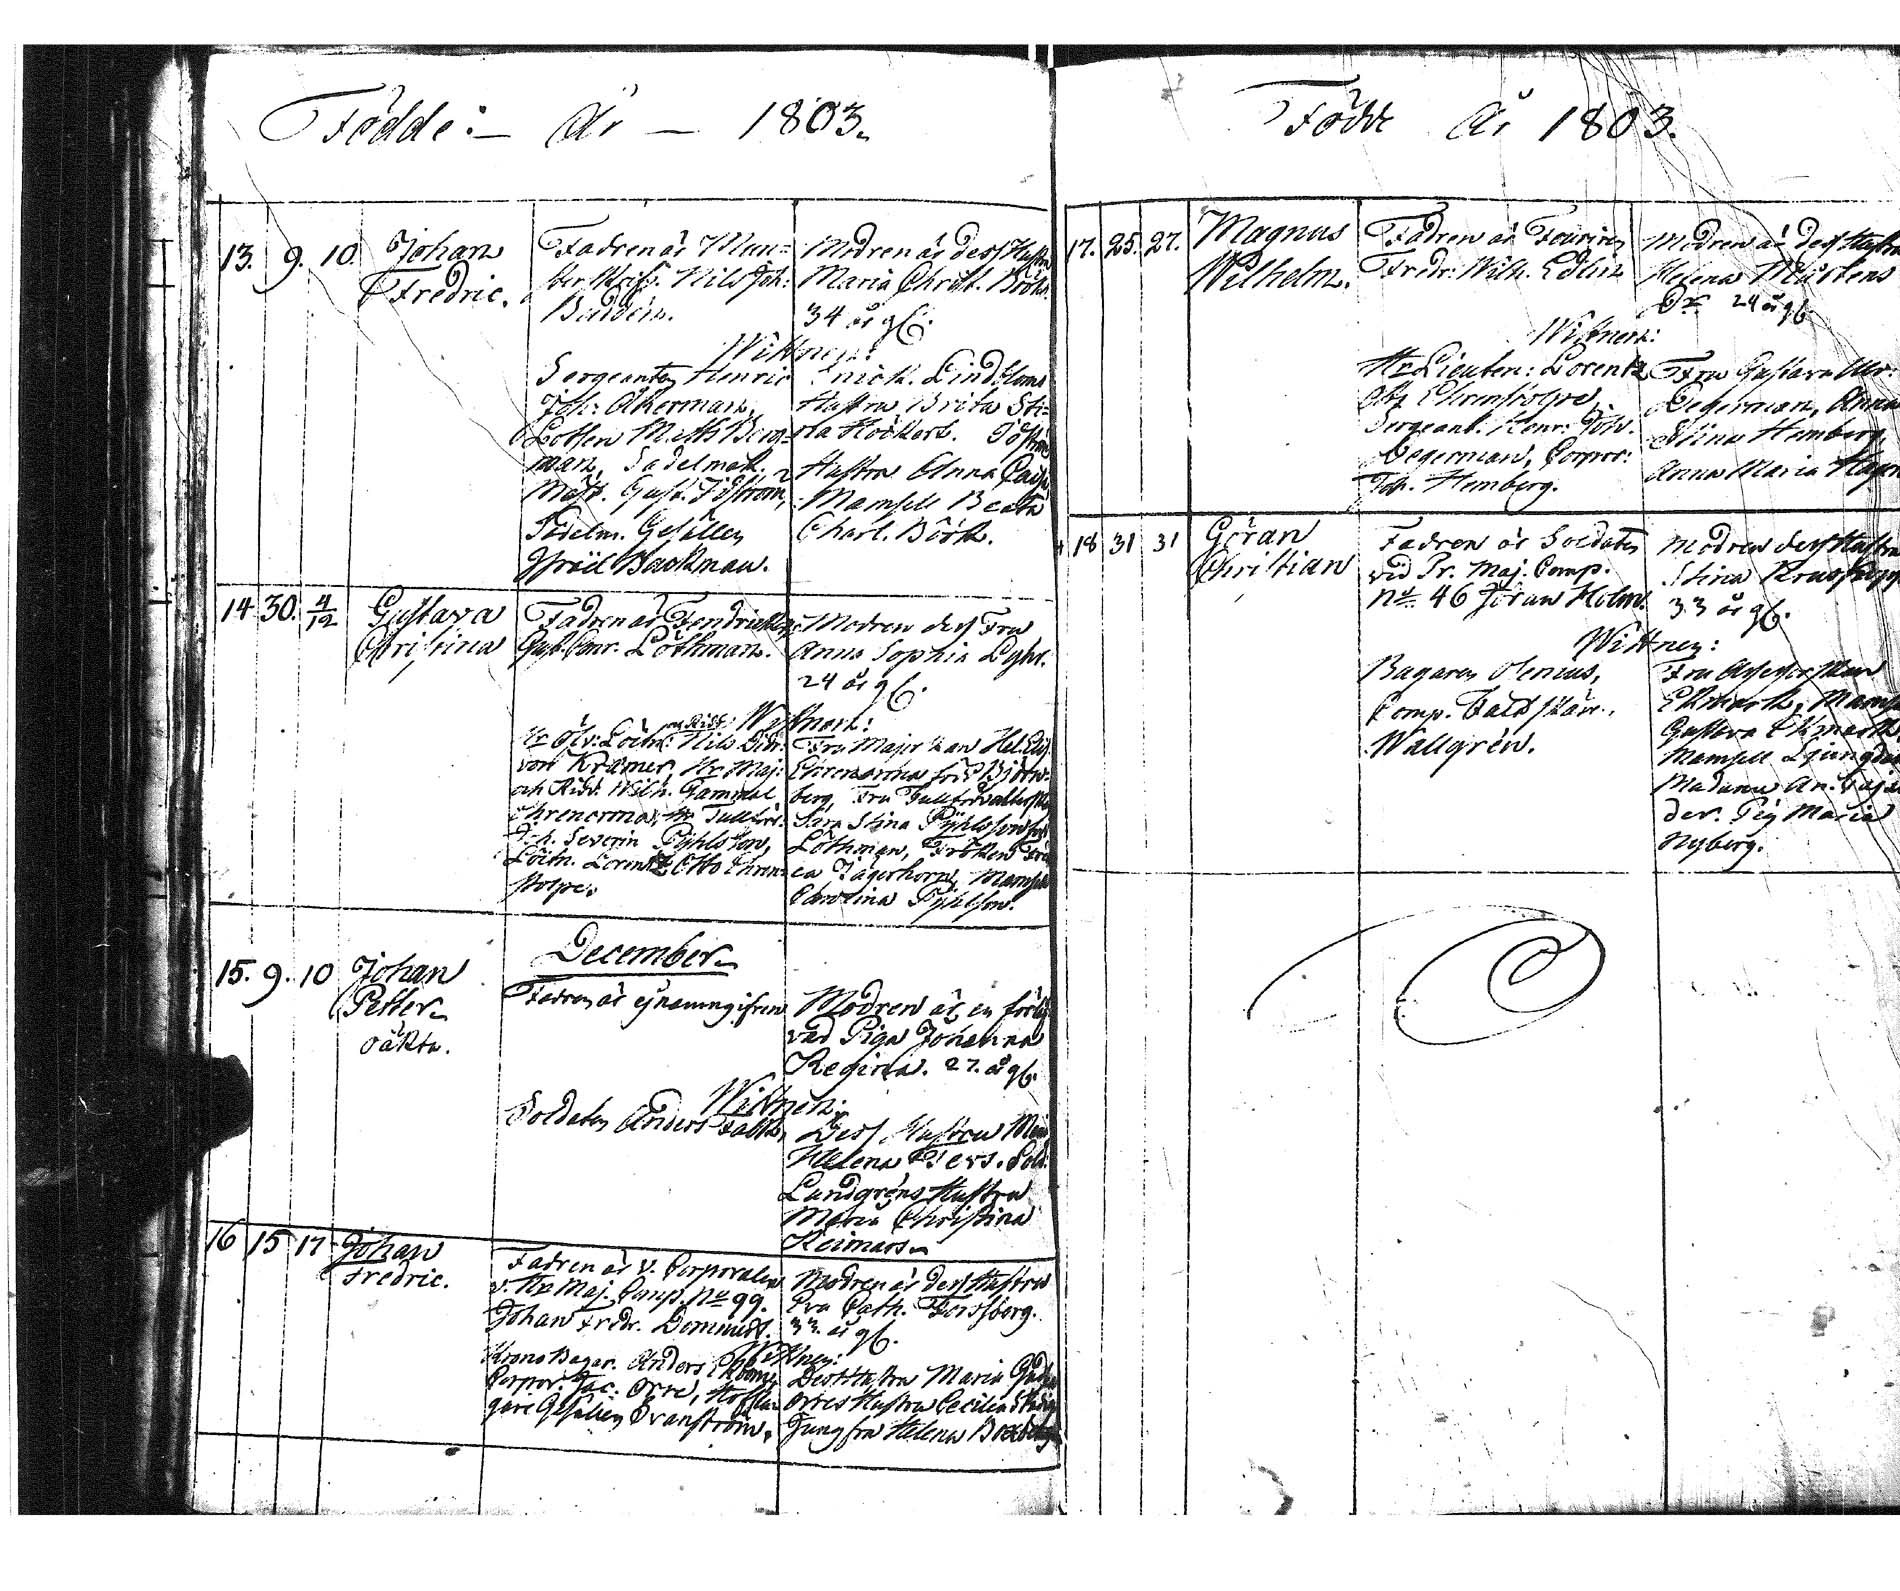 Födde: — År — 1803.
13. 9. 10. Johan
Fredric.
Fadren är Mun=
ster Skrifv. Nils Joh:
Modren är dess Hustru
Maria Christ.
34 år gl.
Wittnen:
Sergeanten Henric
Joh: Åkerman,
Lotsen Matts Berg=
man, Sadelmak.
Mäst. Gust. Töström,
Sadelm. Gesällen
Israël Backman.
Enich. Lindbloms
Hustru Brita Sti=
na Höckert. Töströms
Hustru Anna Cais.
Mamsell Beata
Charl. Böök.
14. 30. 4/12 Gustava
Christina
Fadren är Fendricken
Gust. Conr. Löthman.
Modren dess Fru
Anna Sophia
24 år gl.
Wittnen:
Hr Öfv: Löitn: och Ridd. Nils Didr.
von Kræmer, Hr Maj:
och Ridd. Wilh. Gammal
Ehrencrona, Hr Tullförv.
Joh. Severin Pyhlsson,
Löitn. Lorentz Otto Ehren=
stolpe.
Fru Majorskan Hel. Elis.
Ehrencrona född Björn=
berg, Fru Tullförvalterskan
Sara Stina Pyhlsson född
Löthman, Fröken
Jägerhorn, Mamsell
Carolina Pyhlson.
December
15. 9. 10 Johan
Petter
oäkta.
Fadren är ej namngifven
Modren är en förlä=
vad Piga Johanna
Regina. 27. år gl.
Wittnen:
Soldaten Anders Falck,
Dess Hustru
Helena Pers. Sold.
Lundgréns Hustru
Maria Christina
Reimars
16 15 17 Johan
Fredric.
Fadren är v. Corporalen
v. Hr Maj. Comp. No 99.
Johan Fredr.
Modren är dess Hustru
Eva Cath. Forssberg.
33 år gl.
Wittnen:
Krono Bagar. Anders Ekbom,
Corpor. Jac: Orre, Hofslа=
gare Gesällen Svanström,
Dess Hustru Maria
Orres Hustru Cecilia
Jungfru Helena
Födde År 1803.
17. 25. 27. Magnus
Wilhelm.
Fadren är Fouriren
Fredr: Wilh. Edlin
Modren är dess Hustru
Helena Mårtens
Dr 24 år gl.
Wittnen:
Hr Lieuten: Lorentz
Otto Ehrenstolpe,
Sergeant. Henr: Joh.
Degerman, Corpor:
Joh. Hemberg.
Fru Gustava Ulr:
Degerman, Anna
Stina Hemberg,
Anna Maria
18 31 31 Göran
Christian
Fadren är Soldaten
vid Pr. Maj. Comp.
No 46 Jöran Holm.
Modren dess Hustru
Stina
33 år gl.
Wittnen:
Bagaren Olenius,
Comp. Fältskär.
Wallgrén.
Fru Assessorskan
Ekmark, Mamsell
Gustava Ekmark,
Mamsell
Madame An.
der. Pig Maria
Nyberg.